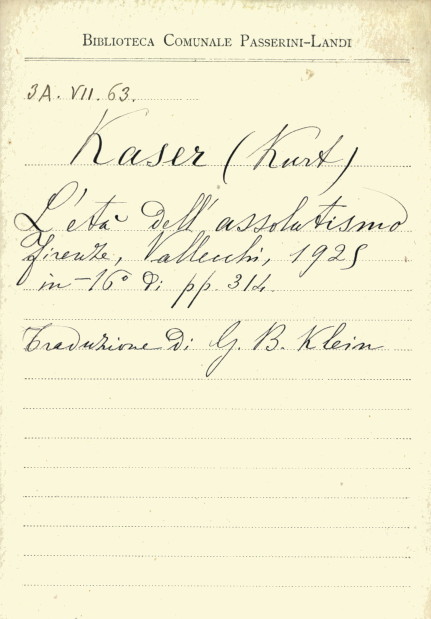 BIBLIOTECA COMUNALE PASSERINI-LANDI
3A. VII. 63.
Kaser (Kurt)
L'età dell'assolutismo
Firenze, Vallecchi, 1925
in-16° di pp. 314.
Traduzione di G. B. Klein